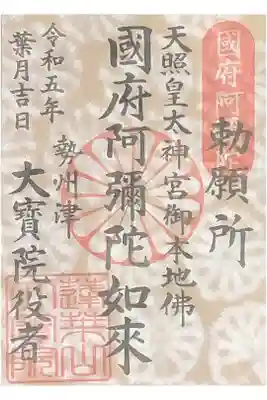 國府阿彌陀
勅願所
天照皇太神宮御本地佛
國府阿彌陀如來
勢州津
大寶院役者
令和五年
葉月吉日
蓮華山